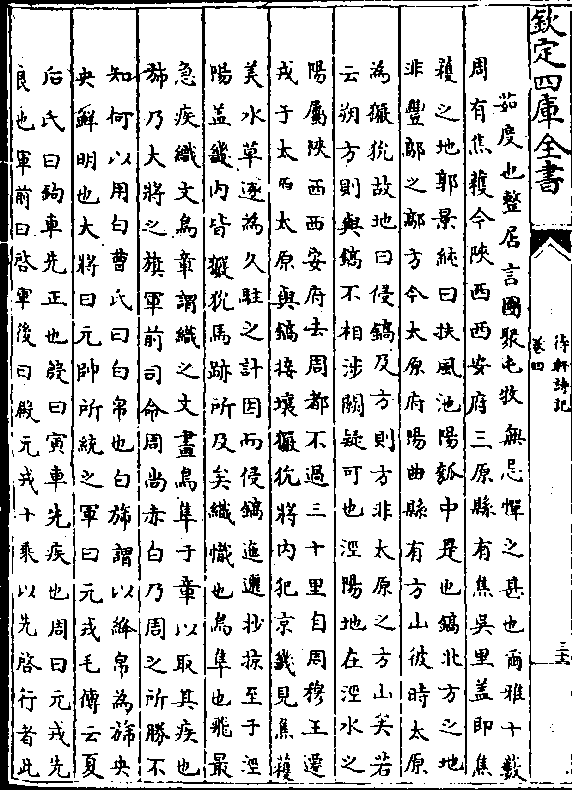 欽定四庫全書
待軒詩記
卷四
茹度也整居言團聚屯牧無忌憚之甚也爾雅十藪
周有焦穫今陝西西安府三原縣有焦吳里盖即焦
穫之地郭景純曰扶風池陽瓠中是也鎬北方之地
非豐鄗之鄗方今太原府陽曲縣有方山彼時太原
為玁狁故地曰侵鎬及方則方非太原之方山矣若
云朔方則與鎬不相涉闕疑可也涇陽地在涇水之
陽屬陝西西安府去周都不過三十里自周穆王遷
戎于太原太原與鎬接壤玁狁將内犯京畿見焦穫
美水草遂為久駐之計因而侵鎬迤邐抄掠至于涇
陽盖畿内皆玁狁馬跡所及矣織幟也鳥隼也飛最
急疾織文鳥章謂織之文畫鳥隼于章以取其疾也
斾乃大將之旗軍前司命周尚赤白乃周之所勝不
知何以用白曹氏曰白帛也白斾謂以絳帛為斾央
央鮮明也大將曰元帥所統之軍曰元戎毛傳云夏
后氏曰鉤車先正也殷曰寅車先疾也周曰元戎先
良也軍前曰啓軍後曰殿元戎十乘以先啓行者此